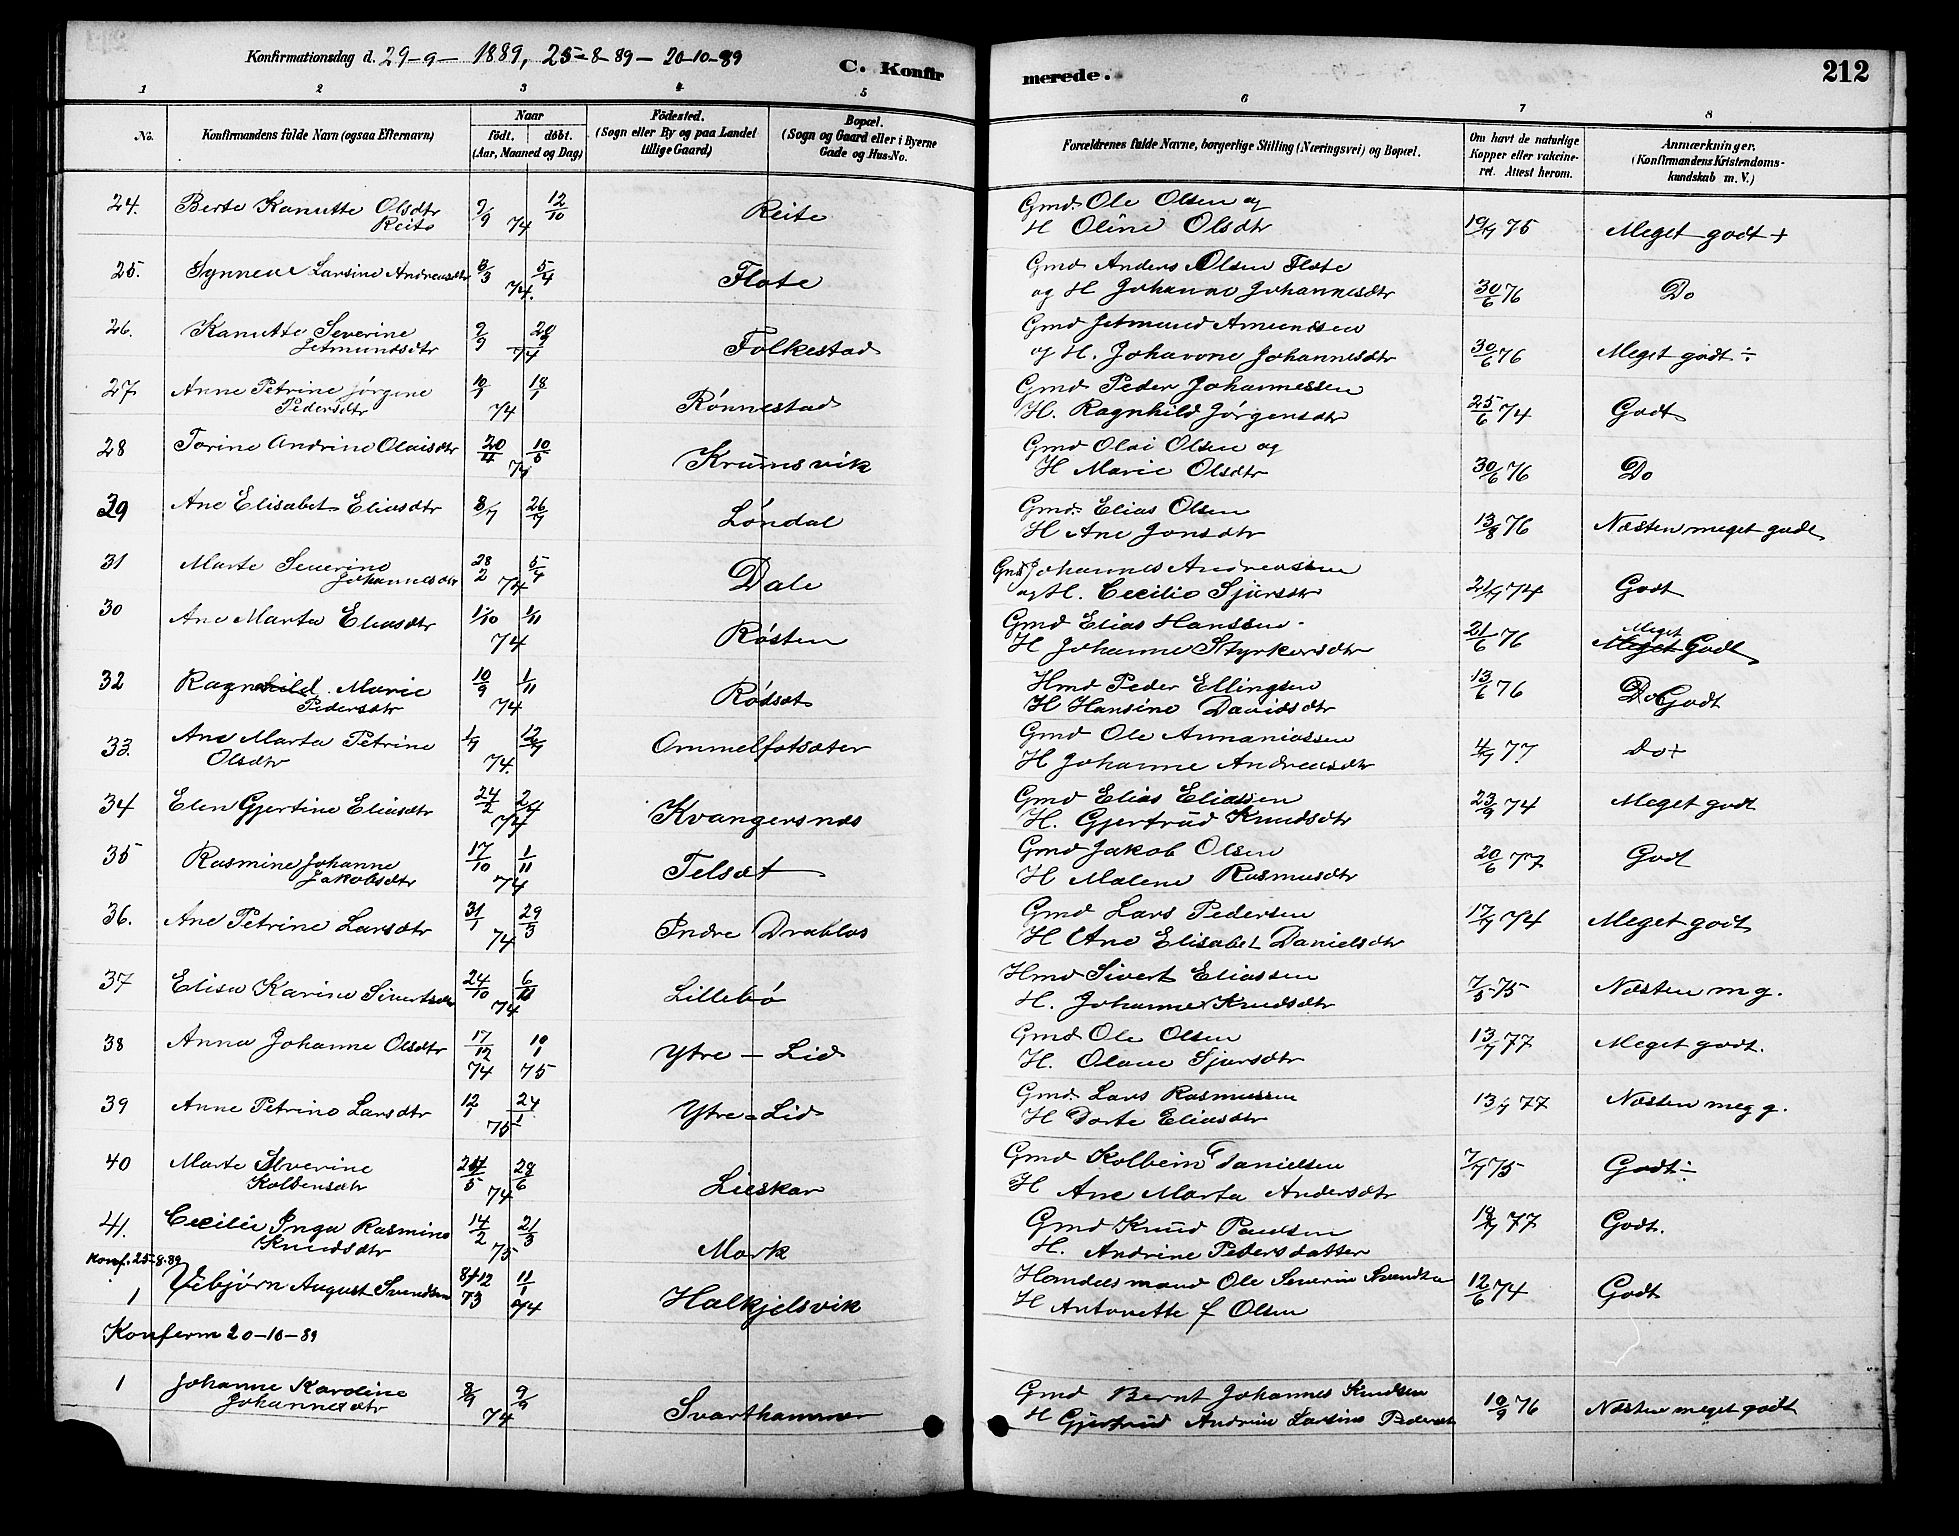 Konfirmationsdag d. 29-9-1889, 25-8-89 - 20-10-89
C. Konfirmerede.
212
1 2 3 4 5 6 7 8
No.
Konfirmandens fulde Navn (ogsaa Efternavn)
Naar
födt. döbt.
(Aar, Maaned og Dag)
Födested.
(Sogn eller By og paa Landet
tillige Gaard)
Bopæl.
(Sogn og Gaard eller i Byerne
Gade og Hus-No.
Forældrenes fulde Navne, borgerlige Stilling (Næringsvei) og Bopæl.
Om havt de naturlige
Kopper eller vakcine-
ret. Attest herom.
Anmærkninger.
(Konfirmandens Kristendoms-
kundskab m. V.)
24. Berte Kanutte Olsdtr 7/9 12/10 Reite Gmd Ole Olsen og
Reite 74 H Oline Olsdtr 19/7 75 Meget godt +
25. Synneve Larsine Andreasdtr 8/3 5/4 Flote Gmd Anders Olsen Flote
74. og H Johanne Johannesdtr 30/6 76 Do
26. Kanutte Severine 2/9 20/9 Folkestad Gmd Jetmund Amundsen
Jetmundsdtr 74 og H. Johanne Johannesdtr 30/6 76 Meget godt ÷
27 Anne Petrine Jørgine 10/1 18/1 Rønnestad Gmd Peder Johannessen
Pedersdtr 74 H. Ragnhild Jørgensdtr 25/6 74 Godt
28 Torine Andrine Olaisdtr 20/4 10/5 Krumsvik Gmd Olai Olsen og
74 H Marie Olsdtr 30/6 76 Do
29 Ane Elisabet Eliasdtr 8/7 26/7 Løndal Gmd. Elias Olsen
H Ane Jonsdtr 13/8 76 Næsten meget godt
31 Marte Severine 28/2 5/4 Dale Gmd Johannes Andreassen
Johannesdtr 74 og H. Cecilie Sjursdtr 21/7 74 Godt
30 Ane Marta Eliasdtr 1/10 1/11 Røsten Gmd Elias Hanssen
74 H Johanne Styrkersdtr 21/6 76 Meget Godt
Meget
32 Ragnhild Marie 10/9 1/11 Rødset Hmd Peder Ellingsen
Pedersdtr 74 H Hansine Davidsdtr 13/6 76 Do Godt
33. Ane Marta Petrine 1/7 12/7 Ommelfotsæter Gmd Ole Annaniassen
Olsdtr 74. H Johanne Andreasdtr 4/7 77 do +
34 Elen Gjertine Eliasdtr 24/2 2/4 Kvangersnes Gmd Elias Eliassen
74 H. Gjertrud Knudsdtr 23/9 74 Meget godt
35 Rasmine Johanne 17/10 1/11 Velsæt Gmd Jakob Olsen
Jakobsdtr 74 H Malene Rasmusdtr 20/6 77 Godt
36. Ane Petrine Larsdtr 31/1 29/3 Indre Drabløs Gmd Lars Pedersen
74 H Ane Elisabet Danielsdtr 17/7 74 Meget godt
37 Elisa Karine Sivertsdtr 24/10 6/11 Lillebø Hmd Sivert Eliassen
74 H. Johanne Knudsdtr 7/5 75 Næsten m g.
38 Anna Johanne Olsdtr 17/12 10/1 Ytre - Lid Gmd Ole Olsen
74 75 H. Olane Sjursdtr 13/7 77 Meget godt.
39 Anne Petrine Larsdtr 12/1 24/1 Ytre - Lid Gmd Lars Rasmussen
75 H Dorte Eliasdtr 13/7 77 Næsten meg g.
40 Marte Severine 24/5 28/6 Lieskar Gmd Kolbein Danielsen
Kolbensdtr 74 H Ane Marta Andersdtr 7/7 75 Godt ÷
41. Cecilie Inga Rasmine 14/2 21/3 Mork Gmd Knud Paulsen
Knudsdtr 75 H. Andrine Pedersdatter 18/7 77 Godt.
Konf. 25-8-89
1 Vebjørn August Svendsen 8/12 11/1 Halkjelsvik Handelsmand Ole Severin Svendsen
73 74 H Antonette f Olsen 12/6 74 Godt
Konferm 20-10-89
1 Johanne Karoline 8/9 9/9 Svarthammer Gmd Bernt Johannes Knudsen
Johannesdtr 74 H Gjertrud Andrine Larsine Pedersdtr 10/9 76 Næsten meget godt